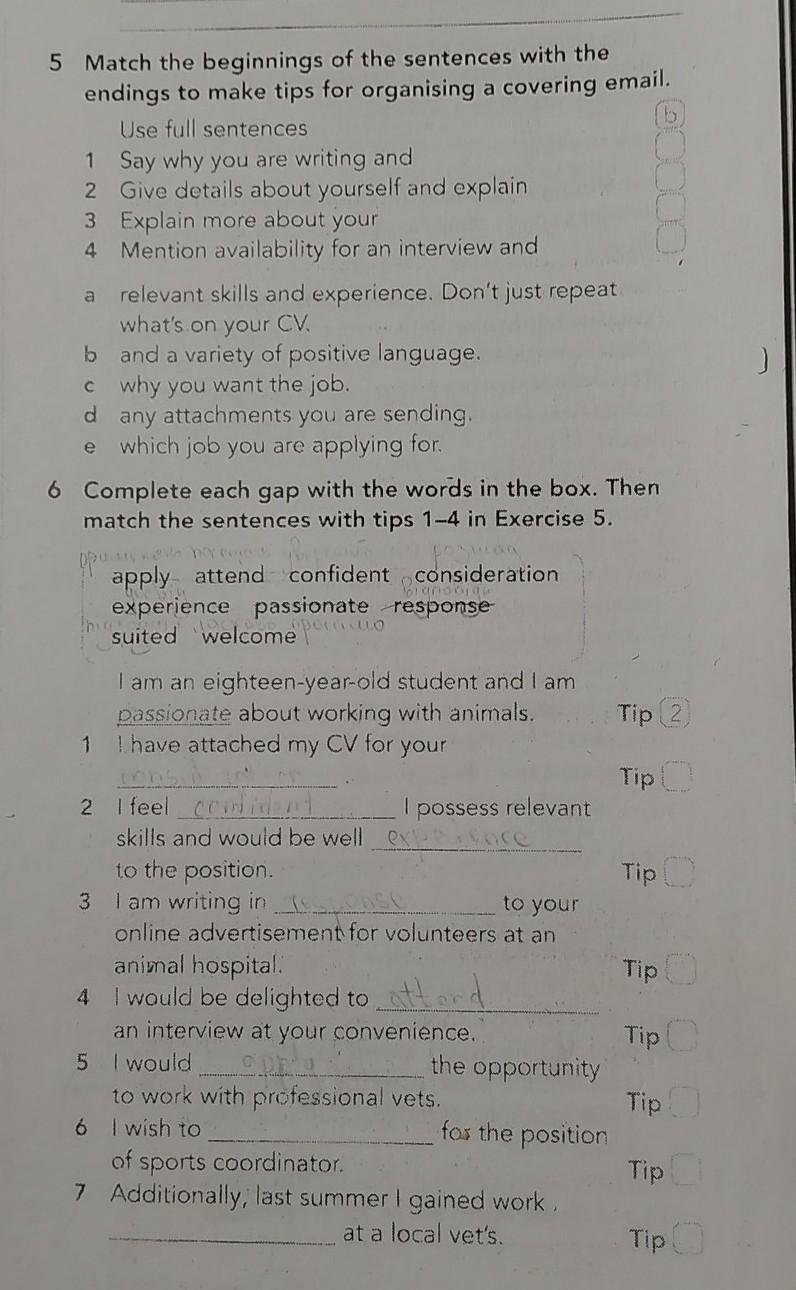 5 Match the beginnings of the sentences with the
endings to make tips for organising a covering email.
Use full sentences b
1 Say why you are writing and
2 Give details about yourself and explain
3 Explain more about your
4 Mention availability for an interview and
a relevant skills and experience. Don't just repeat
what's on your CV.
b and a variety of positive language.
c why you want the job.
d any attachments you are sending.
e which job you are applying for.
6 Complete each gap with the words in the box. Then
match the sentences with tips 1–4 in Exercise 5.
apply attend confident consideration
experience passionate response
suited welcome
I am an eighteen-year-old student and I am
passionate about working with animals. Tip 2
1 I have attached my CV for your
. Tip
2 I feel confident I possess relevant
skills and would be well experience
to the position. Tip
3 I am writing in response to your
online advertisement for volunteers at an
animal hospital. Tip
4 I would be delighted to attend
an interview at your convenience. Tip
5 I would the opportunity
to work with professional vets. Tip
6 I wish to for the position
of sports coordinator. Tip
7 Additionally, last summer I gained work
at a local vet's. Tip